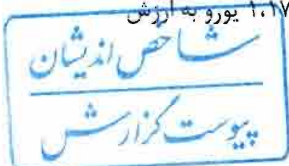 ۱،۱۷ یورو به ارزش
شاخص اندیشان
پیوست گزارش